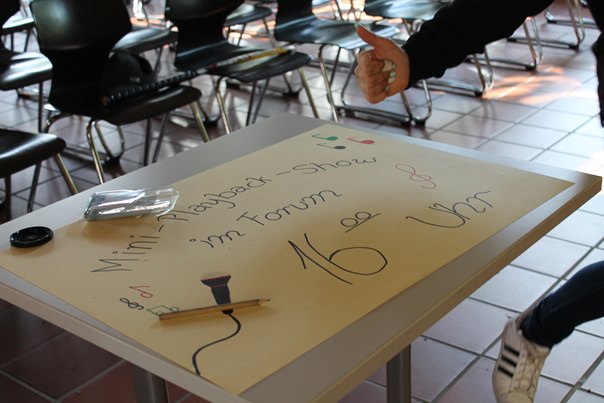 Mini-Playback-Show
im Forum
16 00 Uhr